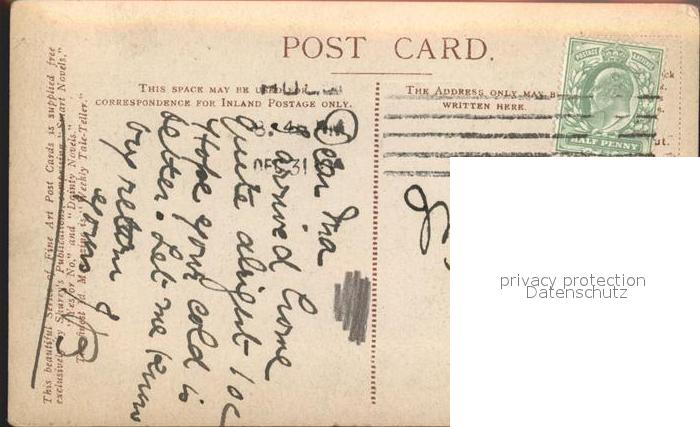 POST CARD.
THIS SPACE MAY BE USED FOR
CORRESPONDENCE FOR INLAND POSTAGE ONLY.
THE ADDRESS ONLY MAY B
WRITTEN HERE.
POSTAGE
HALF PENNY
This beautiful Series of Fine Art Post Cards is supplied free
exclusively by Shurey's Publications, comprising "Smart Novels,"
"Yes or No," and "Dainty Novels."
"Weekly Tale-Teller."
Dear Ma
arrived home
quite alright 1 oc
Hope your cold is
better. Let me know
by return
yours
privacy protection
Datenschutz